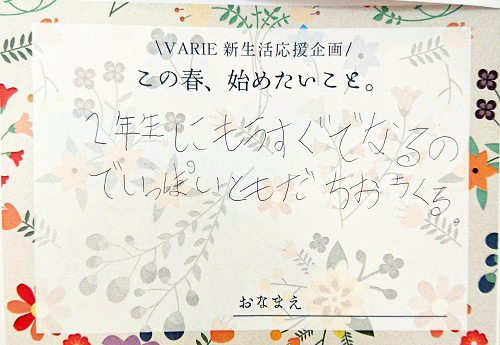 \VARIE 新生活応援企画/
この春、始めたいこと。
2年生にもうすぐでなるの
でいっぱいともだちおつくる。
おなまえ